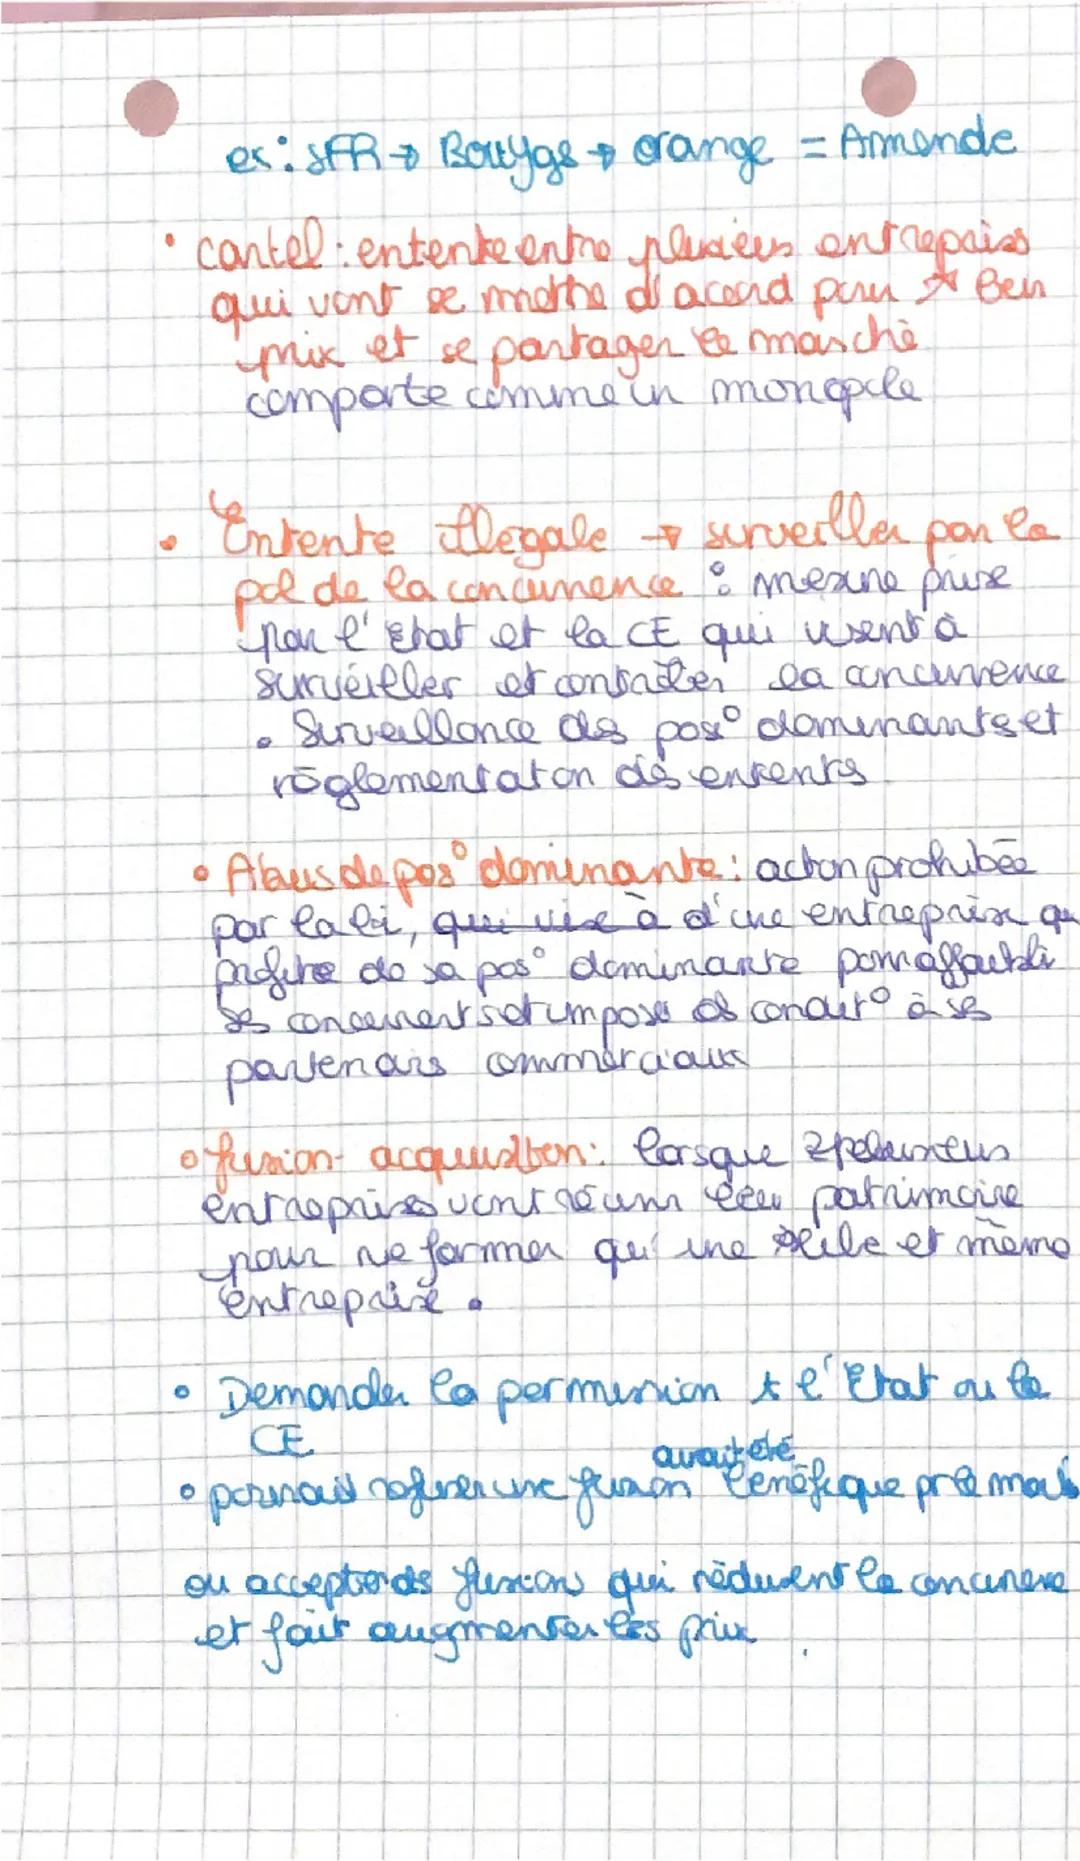 ex: SFR → Bouygs → orange = Amende
• cartel : entente entre plusieurs entrepaiss
qui vont se mettre d'acord pour ↗ leur
prix et se partager le marché
comporte comme un monopole
• Entente illegale → surveiller par la
pol de la concurrence : mesure prise
par l'Etat et la CE qui visent à
surveiller et contrôler la concurrence
• Surveillance des pos° dominantes et
réglementaton des ententes
• Abus de pos° dominante : acton prohibée
par la loi, qui vise à d'une entreprise qu
profite de sa pos° dominante pour affaubli
ses concurrents et impose des condit° à ses
partenairs commerciaux
• fusion - acquisition : lorsque 2 plusieurs
entreprises vont réunir leur patrimoire
pour ne former qu'une seule et même
entreprise.
• Demander la permission à l'Etat ou la
CE
avait été
• pourrais refuser une fusion bénéfique pr le marché
ou accepter des fusions qui réduisent la concurrence
et fait augmenter les prix